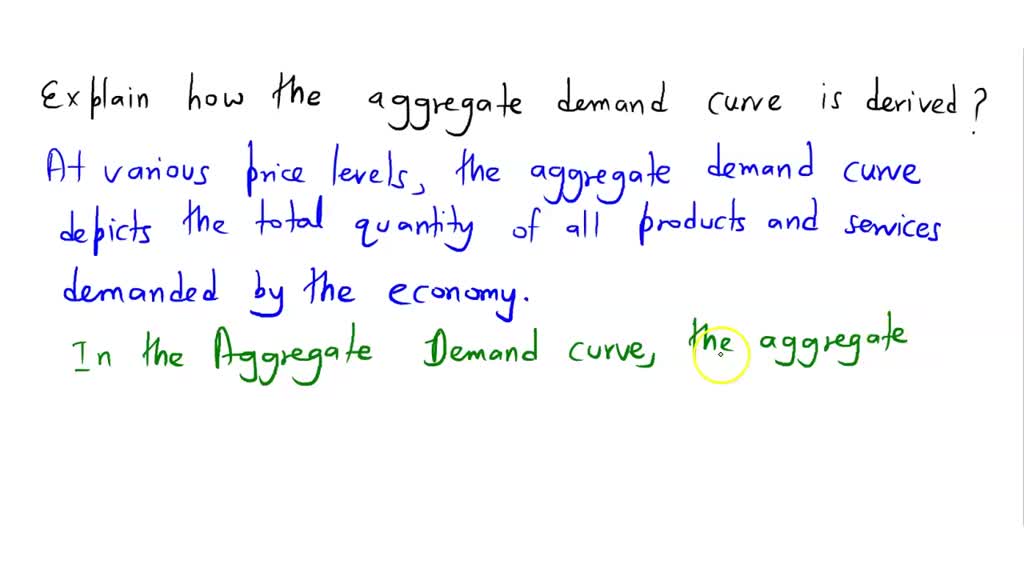 Explain how the aggregate demand curve is derived?
At various price levels, the aggregate demand curve
depicts the total quantity of all products and services
demanded by the economy.
In the Aggregate Demand curve, the aggregate